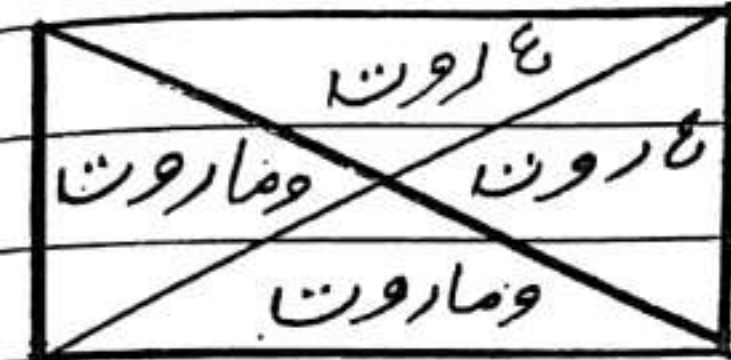 هاروت
هاروت
وماروت
وماروت